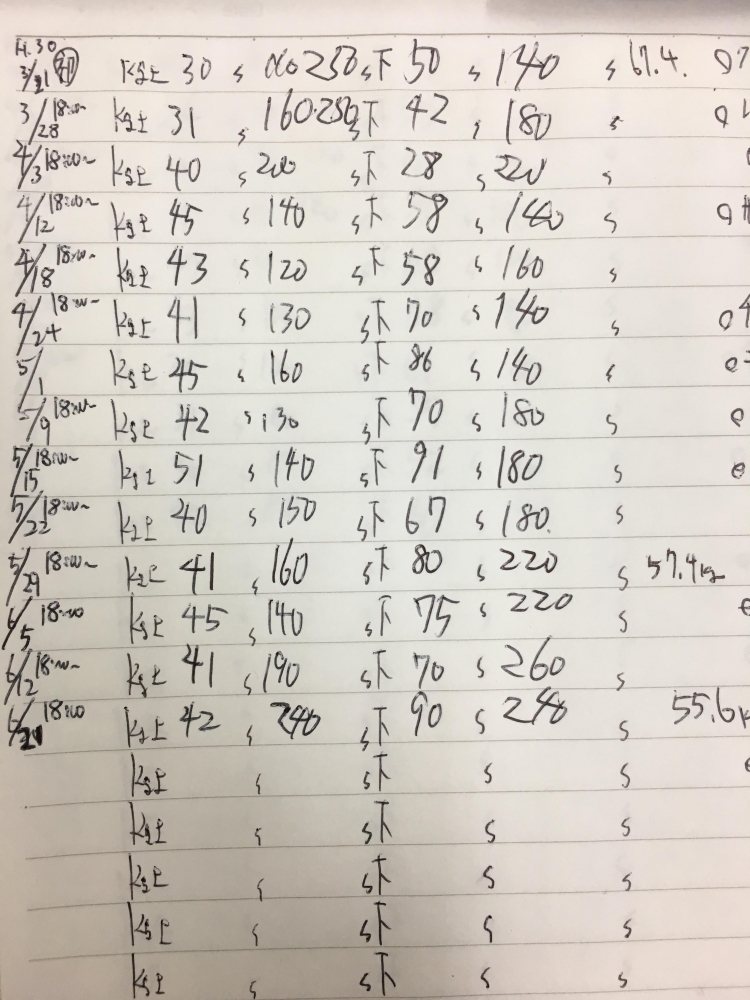 H.30
3/21 初 Kg上 30 s 250 s下 50 s 140 s 67.4.
3/28 18:00~ Kg上 31 s 160 250 s下 42 s 180 s
4/3 18:00~ Kg上 40 s 200 s下 28 s 220 s
4/12 18:00~ Kg上 45 s 140 s下 58 s 140 s
4/18 18:00~ Kg上 43 s 120 s下 58 s 160 s
4/24 18:00~ Kg上 41 s 130 s下 70 s 140 s
5/1 Kg上 45 s 160 s下 86 s 140 s
5/9 18:00~ Kg上 42 s 130 s下 70 s 180 s
5/15 18:00~ Kg上 51 s 140 s下 91 s 180 s
5/22 18:00~ Kg上 40 s 150 s下 67 s 180 s
5/29 18:00~ Kg上 41 s 160 s下 80 s 220 s 57.4kg
6/5 18:00 Kg上 45 s 140 s下 75 s 220 s
6/12 18:00~ Kg上 41 s 190 s下 70 s 260 s
6/21 18:00 Kg上 42 s 240 s下 90 s 240 s 55.6k
Kg上 s s下 s s
Kg上 s s下 s s
Kg上 s s下 s s
Kg上 s s下 s s
Kg上 s s下 s s